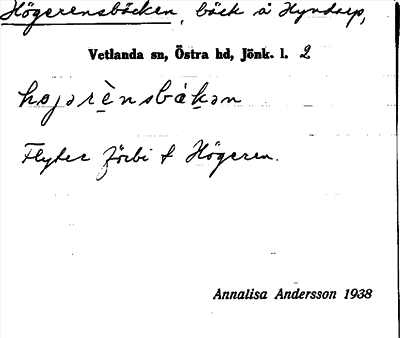 Högerensbäcken, bäck å Hyndarp,
Vetlanda sn, Östra hd, Jönk. l. 2
Flyter förbi t Högeren.
Annalisa Andersson 1938